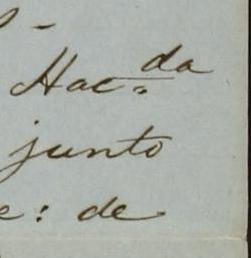 Hac:da
junto
e: de